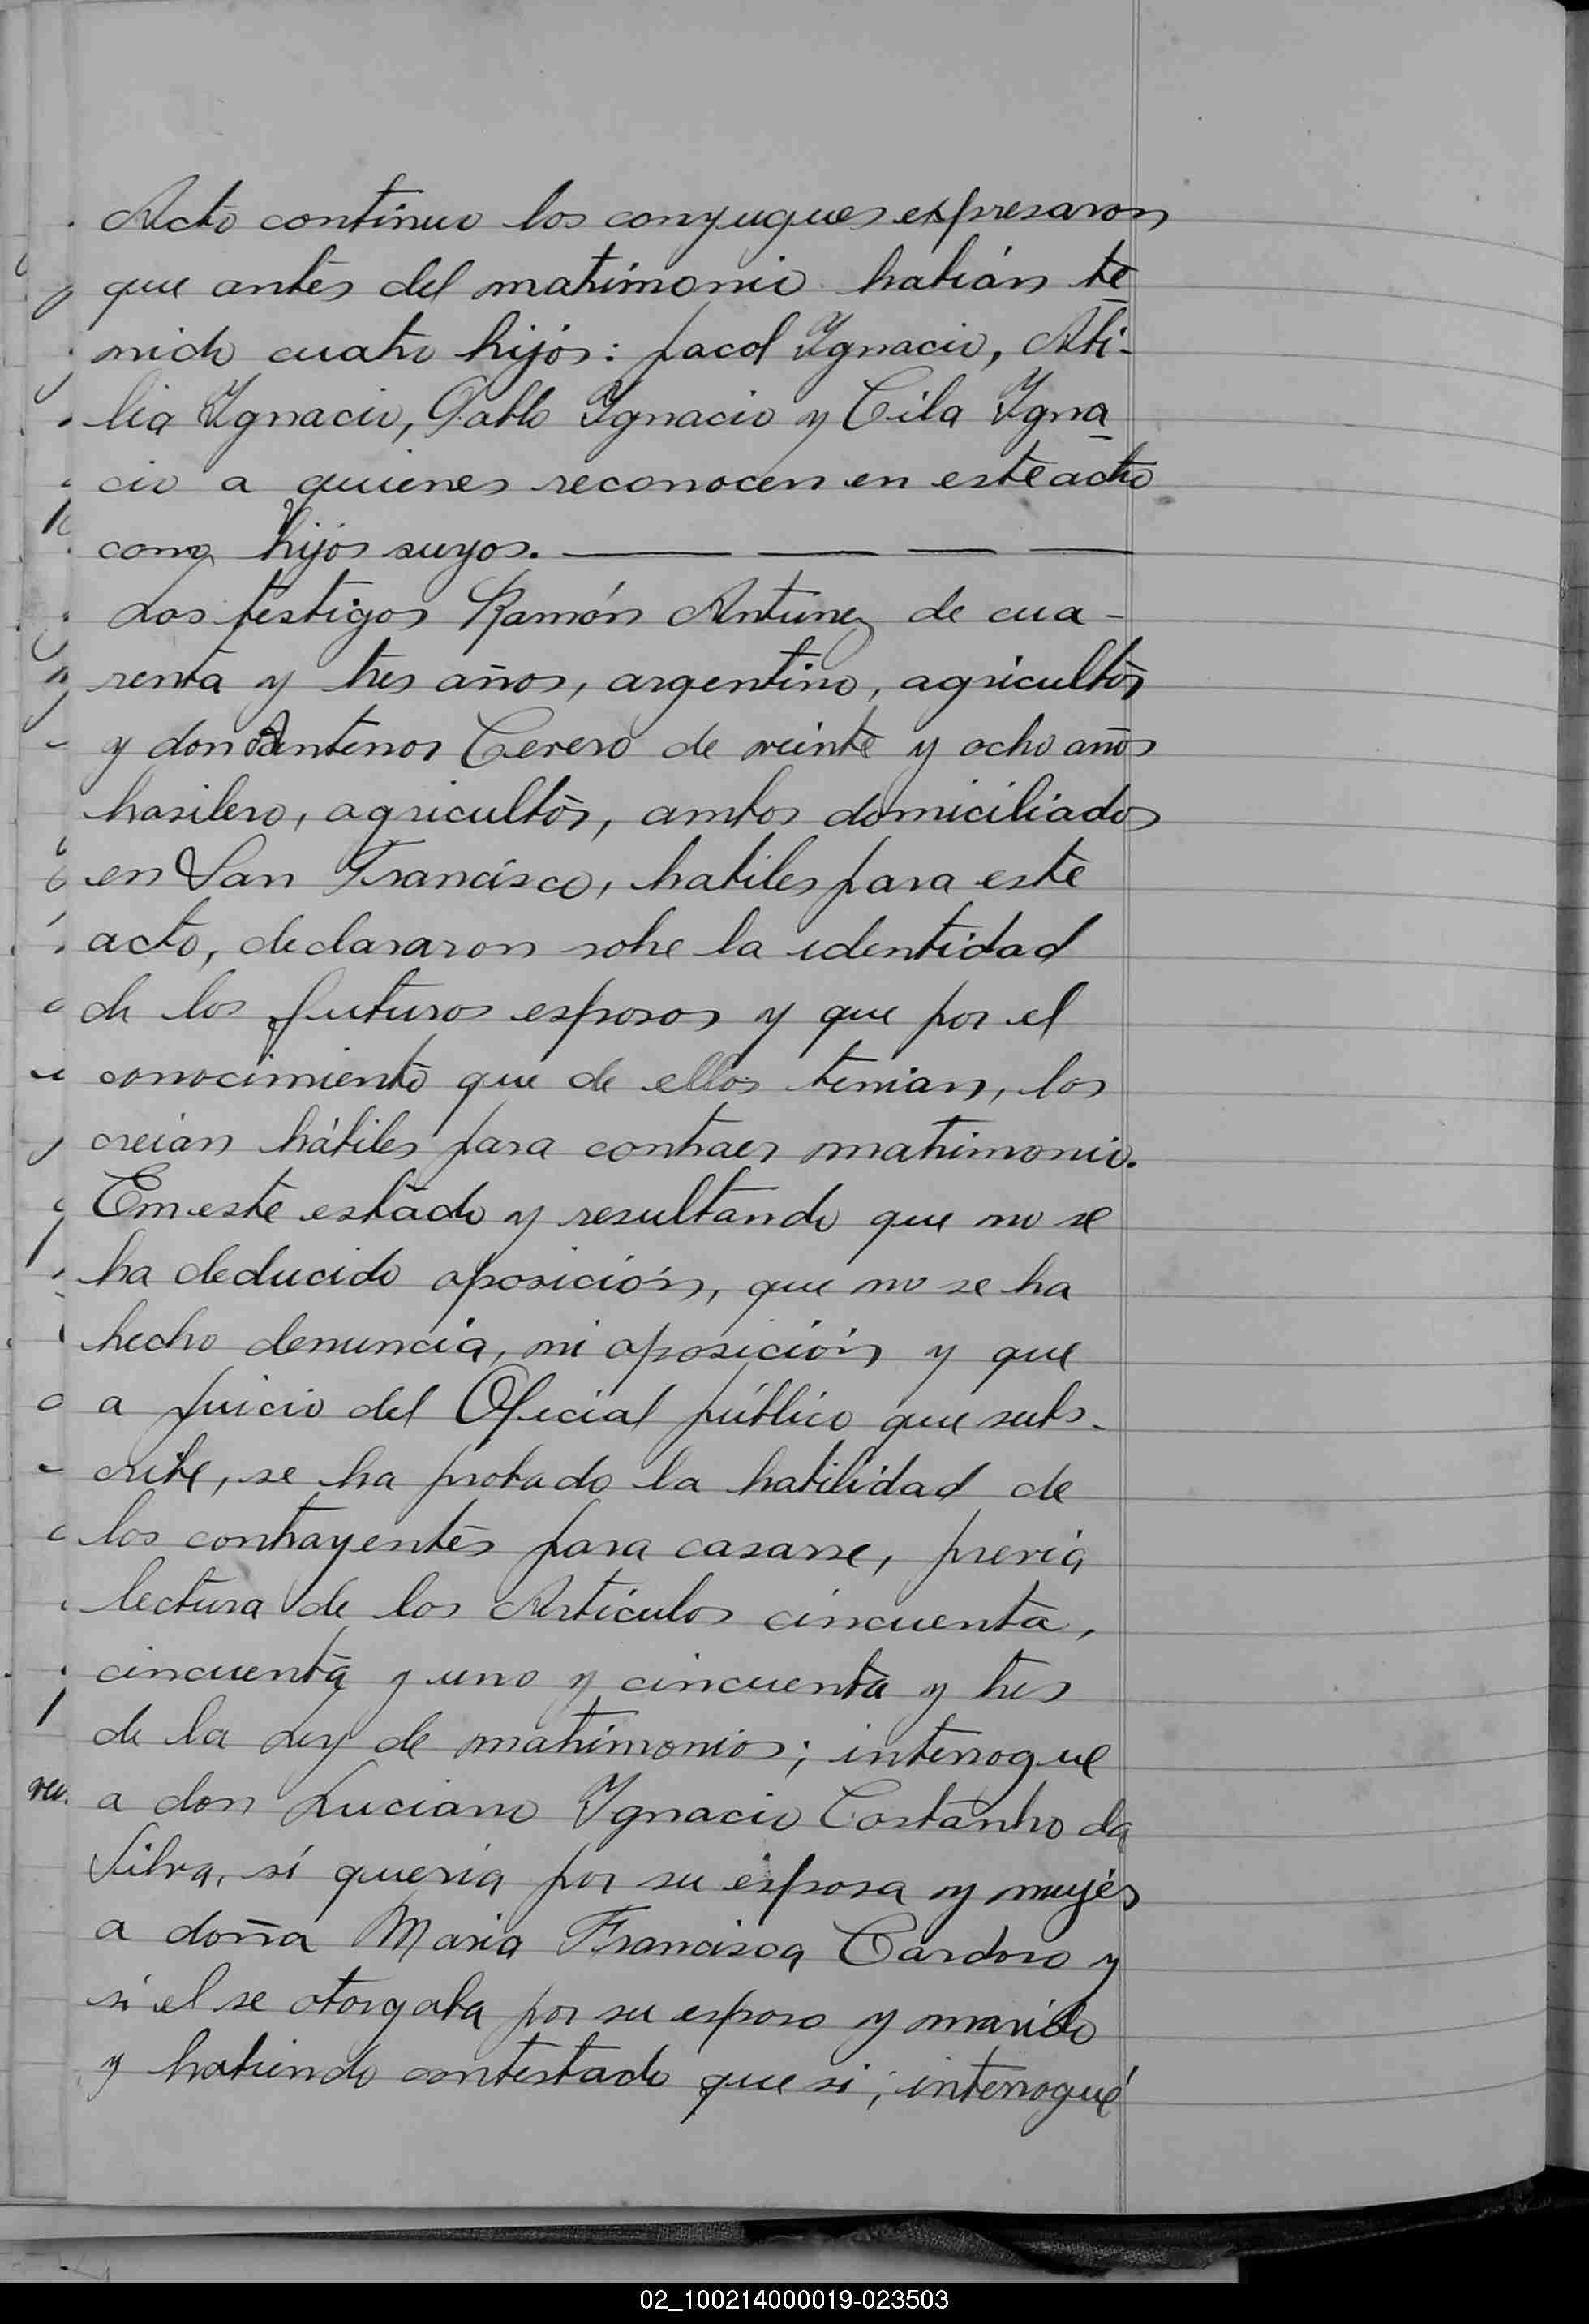 Acto continuo los conyugues expresaron
que antes del matrimonio habián te
nido cuatro hijos: Jacob Ignacio, Ati-
lia Ignacio, Pablo Ignacio y Cila Igna
cio a quienes reconocen en este acto
como hijos suyos.
Los testigos Ramón Antunez de cua-
renta y tres años, argentino, agricultor
y don Antenor Cerero de veinte y ocho años
brasilero, agricultor, ambos domiciliados
en San Francisco, habiles para este
acto, declararon sobre la identidad
de los futuros esposos y que por el
conocimiento que de ellos tenian, los
creian hábiles para contraer matrimonio.
En este estado y resultando que no se
ha deducido oposición, que no se ha
hecho denuncia, ni oposición y que
a juicio del Oficial público que subs-
cribe, se ha probado la habilidad de
los contrayentes para casarse, previa
lectura de los Artículos cincuenta,
cincuenta y uno y cincuenta y tres
de la Ley de matrimonios; interrogue
a don Luciano Ignacio Costanho da
Silva, si queria por su esposa y mujer
a doña Maria Francisca Cardoso y
si el se otorgaba por su esposo y marido
y habiendo contestado que si; interrogué
02_100214000019-023503